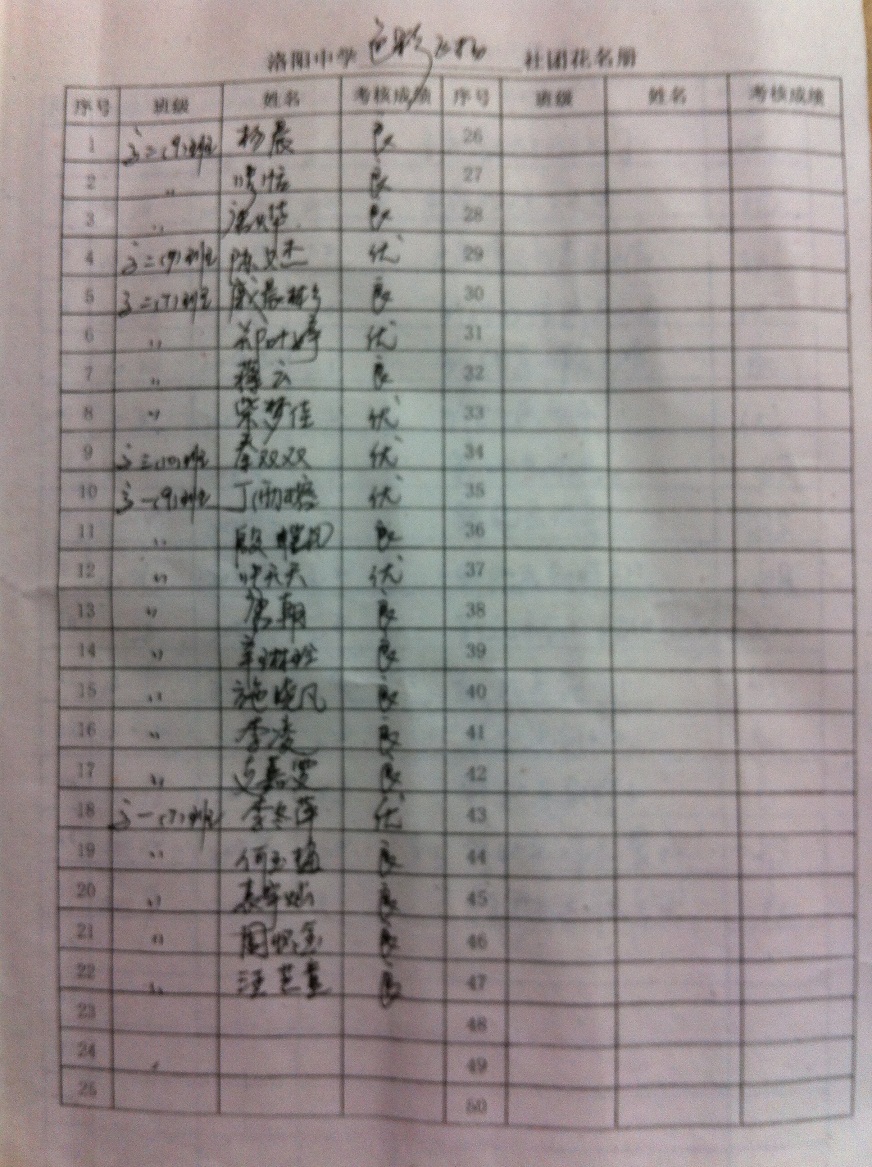 洛阳中学 色彩飞扬 社团花名册
序号 班级 姓名 考核成绩 序号 班级 姓名 考核成绩
1 高二(9)班 杨晨 良 26
2 〃 良 27
3 〃 良 28
4 高二(9)班 陈 杰 优 29
5 高二(7)班 良 30
6 〃 郑叶婷 优 31
7 〃 蒋云 良 32
8 〃 柴梦佳 优 33
9 高二(10)班 秦双双 优 34
10 高一(9)班 丁雨 优 35
11 〃 殷 良 36
12 〃 叶天天 优 37
13 〃 唐朝 良 38
14 〃 良 39
15 〃 施晓凡 良 40
16 〃 李凌 良 41
17 〃 嘉雯 良 42
18 高一(7)班 李冬萍 优 43
19 〃 何玉梅 良 44
20 〃 袁宇灿 良 45
21 〃 周 良 46
22 〃 汪芷萱 良 47
23 48
24 49
25 50